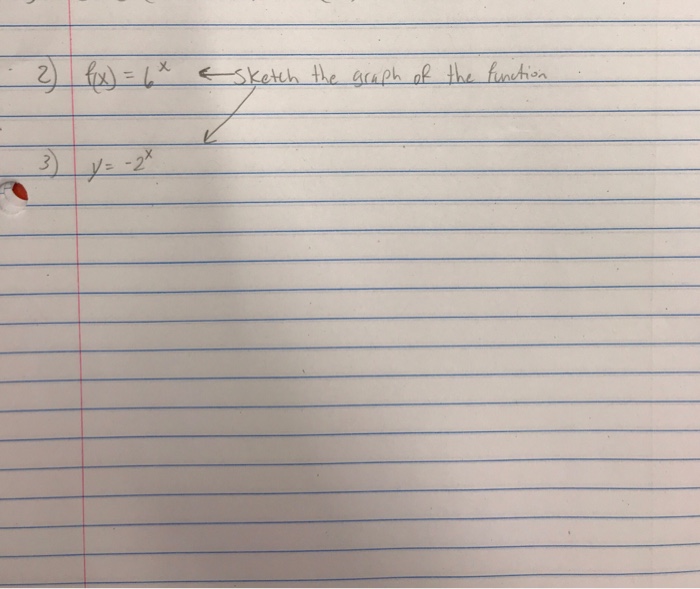 2) f(x) = 6^x ← Sketch the graph of the function
3) y = -2^x